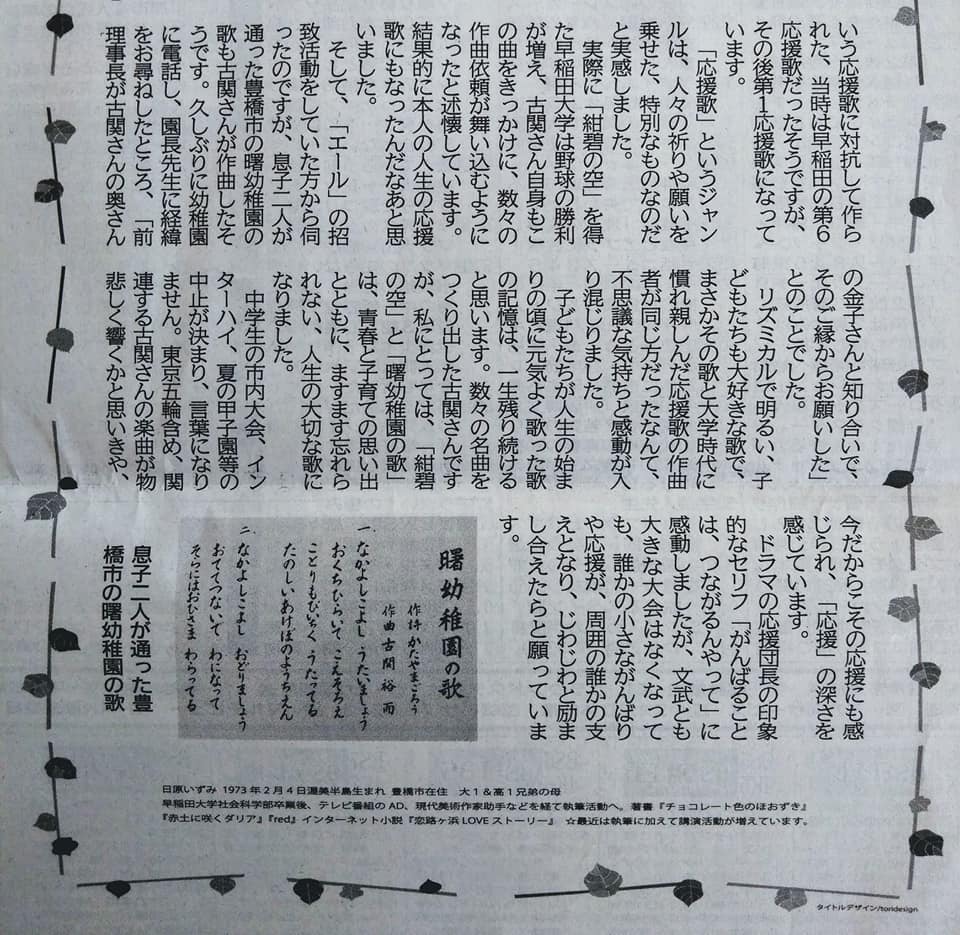 いう応援歌に対抗して作ら
れた、当時は早稲田の第６
応援歌だったそうですが、
その後第１応援歌になって
います。
「応援歌」というジャン
ルは、人々の祈りや願いを
乗せた、特別なものなのだ
と実感しました。
実際に「紺碧の空」を得
た早稲田大学は野球の勝利
が増え、古関さん自身もこ
の曲をきっかけに、数々の
作曲依頼が舞い込むように
なったと述懐しています。
結果的に本人の人生の応援
歌にもなったんだなあと思
いました。
そして、「エール」の招
致活動をしていた方から伺
ったのですが、息子二人が
通った豊橋市の曙幼稚園の
歌も古関さんが作曲したそ
うです。久しぶりに幼稚園
に電話し、園長先生に経緯
をお尋ねしたところ、「前
理事長が古関さんの奥さん
の金子さんと知り合いで、
そのご縁からお願いした」
とのことでした。
リズミカルで明るい、子
どもたちも大好きな歌で、
まさかその歌と大学時代に
慣れ親しんだ応援歌の作曲
者が同じ方だったなんて、
不思議な気持ちと感動が入
り混じりました。
子どもたちが人生の始ま
りの頃に元気よく歌った歌
の記憶は、一生残り続ける
と思います。数々の名曲を
つくり出した古関さんです
が、私にとっては、「紺碧
の空」と「曙幼稚園の歌」
は、青春と子育ての思い出
とともに、ますます忘れら
れない、人生の大切な歌に
なりました。
中学生の市内大会、イン
ターハイ、夏の甲子園等の
中止が決まり、言葉になり
ません。東京五輪含め、関
連する古関さんの楽曲が物
悲しく響くかと思いきや、
今だからこその応援にも感
じられ、「応援」の深さを
感じています。
ドラマの応援団長の印象
的なセリフ「がんばること
は、つながるんやって」に
感動しましたが、文武とも
大きな大会はなくなって
も、誰かの小さながんばり
や応援が、周囲の誰かの支
えとなり、じわじわと励ま
し合えたらと願っていま
す。
曙幼稚園の歌
作詩 かたやまごろう
作曲 古関裕而
一、なかよしこよし うたいましょう
おくちひらいて こえそろえ
ことりもぴいぴく うたってる
たのしいあけぼのようちえん
二、なかよしこよし おどりましょう
おててつないで わになって
そらにはおひさま わらってる
息子二人が通った豊
橋市の曙幼稚園の歌
日原いずみ 1973年2月4日渥美半島生まれ 豊橋市在住 大１＆高１兄弟の母
早稲田大学社会科学部卒業後、テレビ番組のAD、現代美術作家助手などを経て執筆活動へ。著書『チョコレート色のほおずき』
『赤土に咲くダリア』『red』インターネット小説『恋路ヶ浜LOVEストーリー』 ☆最近は執筆に加えて講演活動が増えています。
タイトルデザイン/toridesign